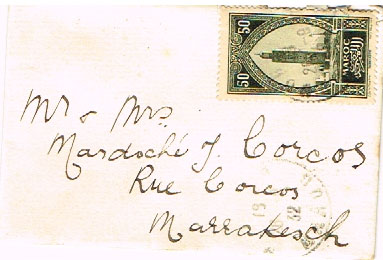 50 50
MAROC
Mr & Mrs.
Mardoché J. Corcos
Rue Corcos
Marrakesch